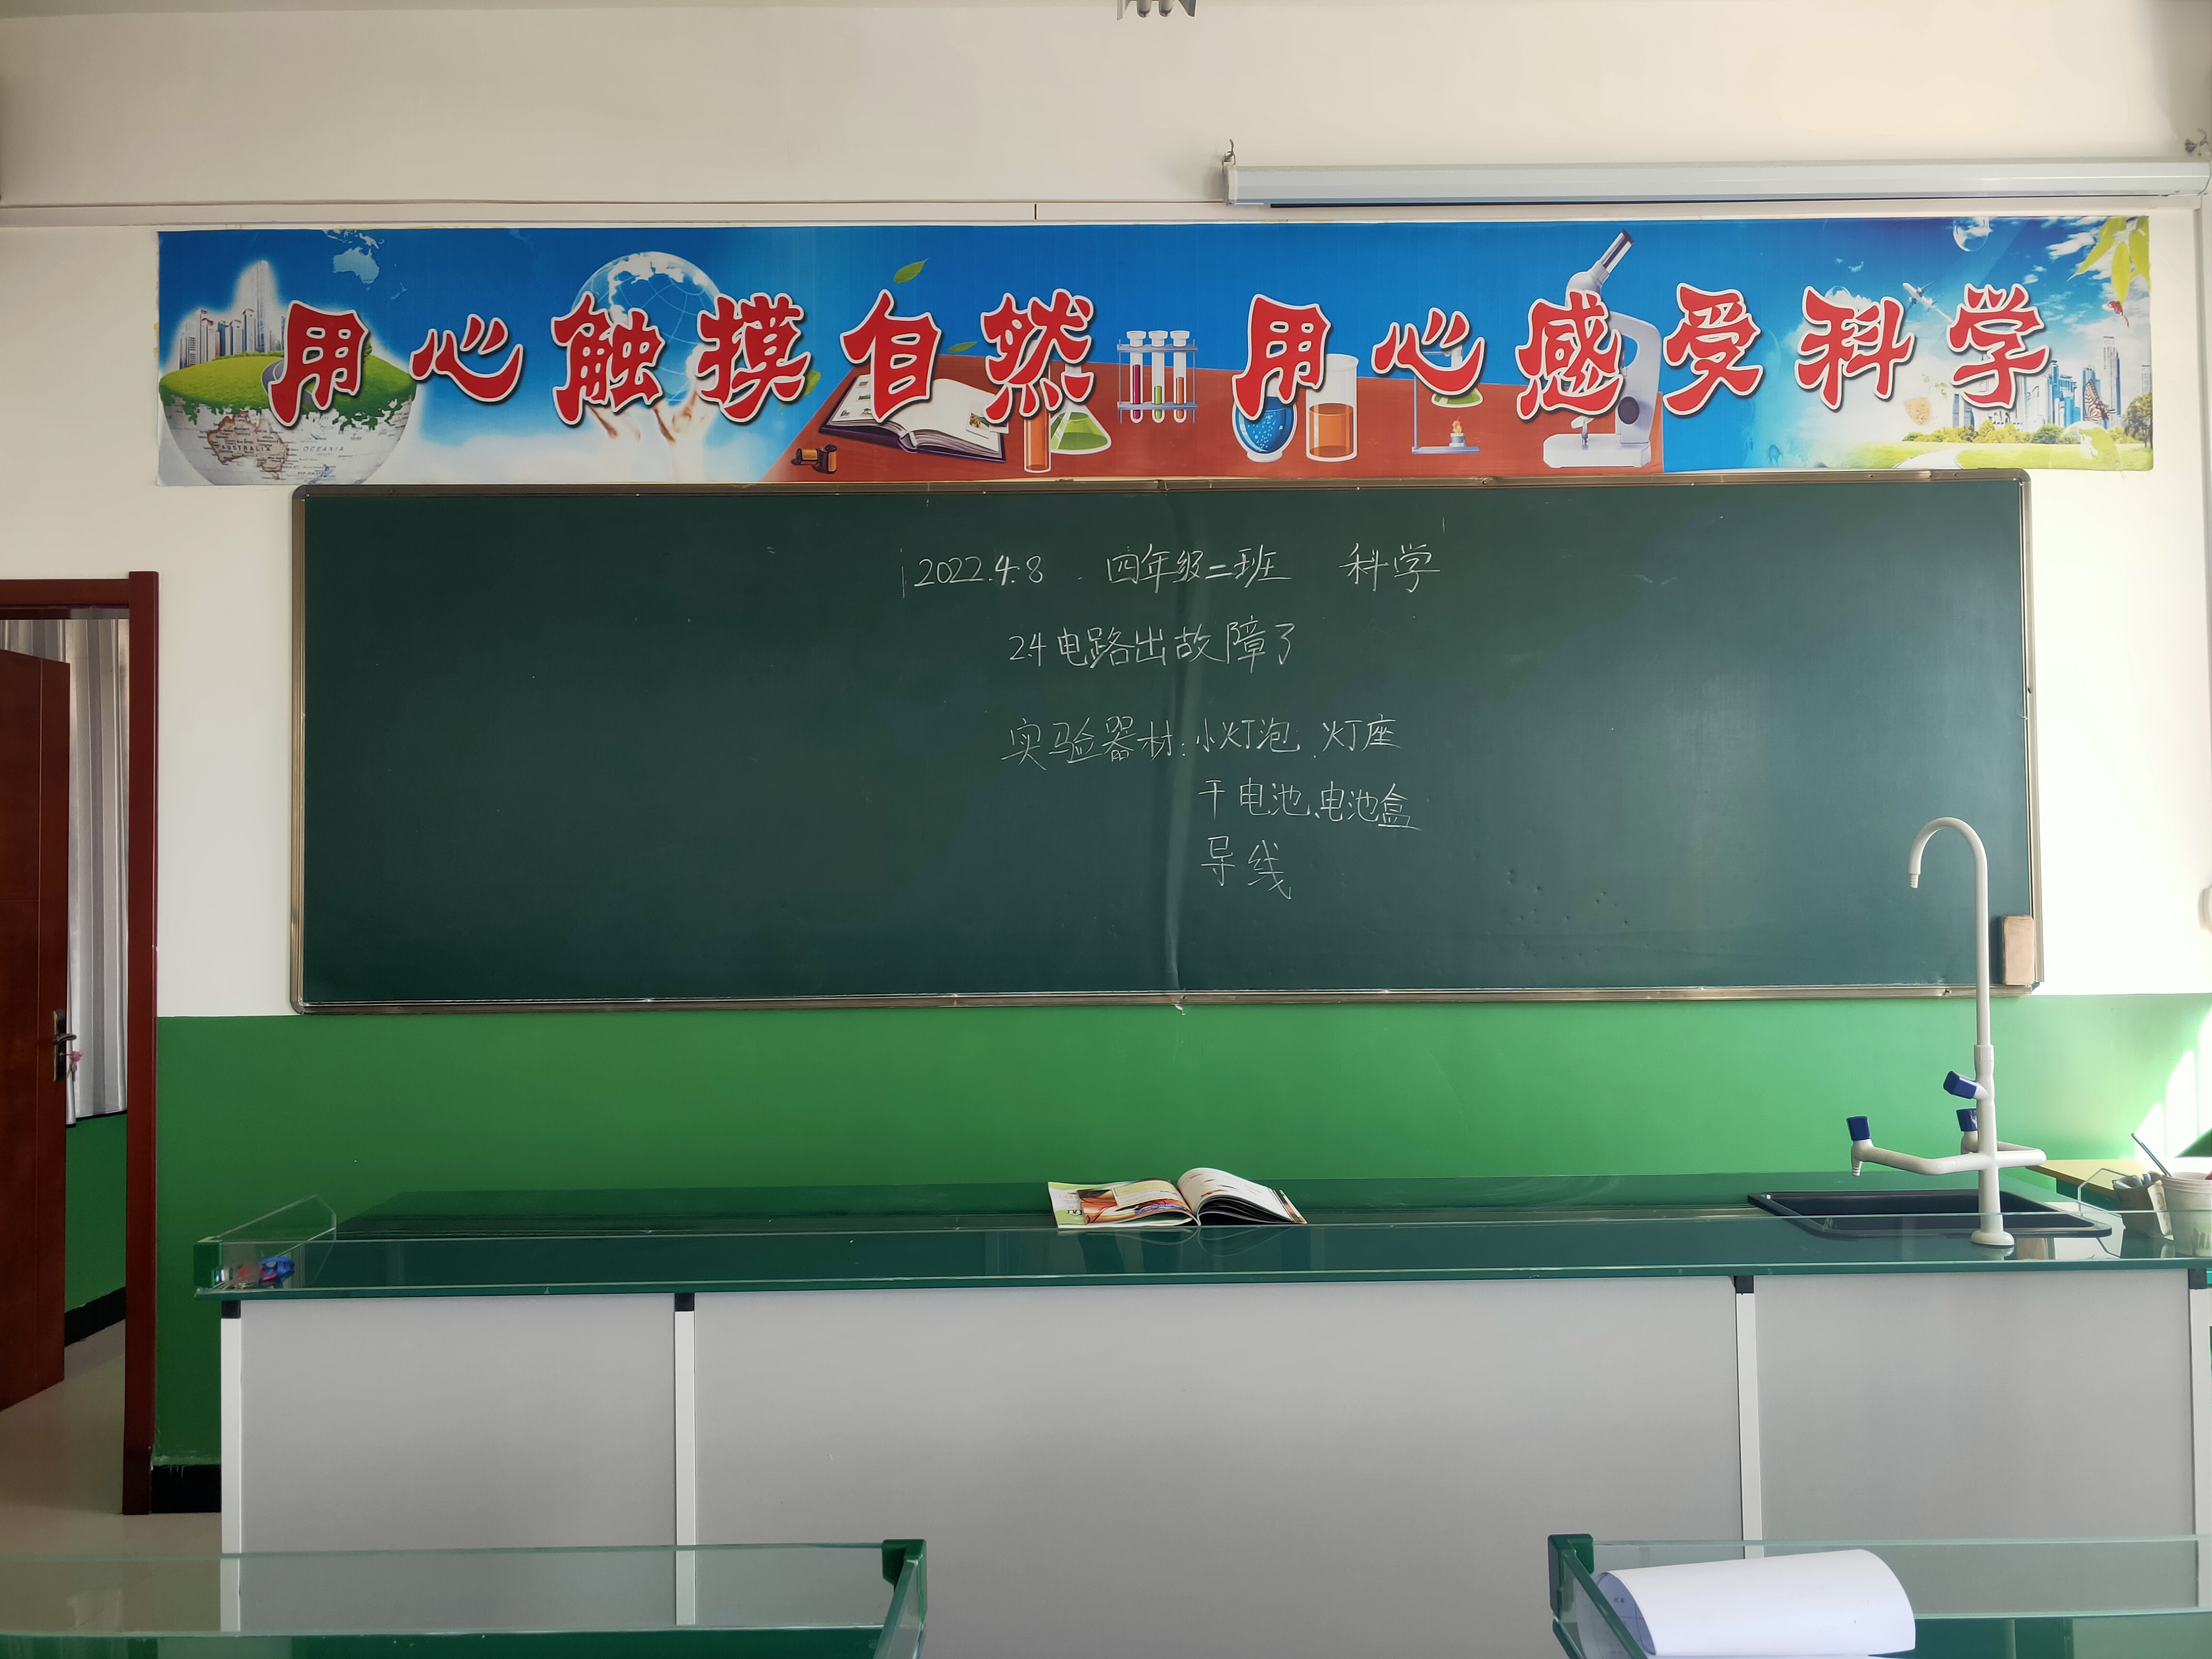 用心触摸自然 用心感受科学
AUSTRALIA
OCEANIA
2022.4.8 四年级二班 科学
2.4 电路出故障了
实验器材:小灯泡、灯座
干电池、电池盒
导线